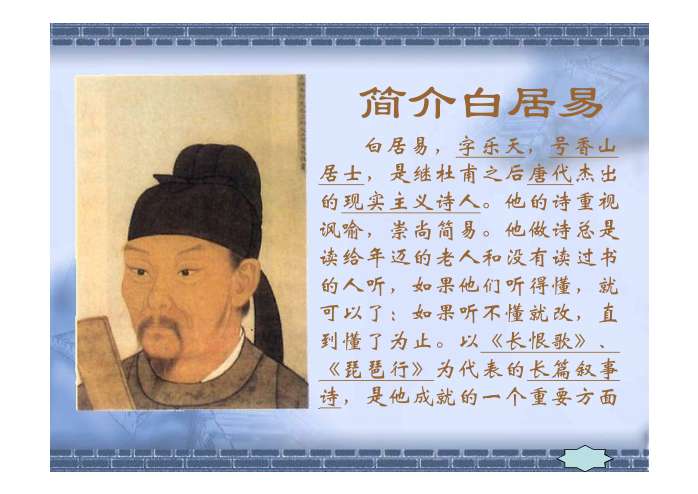 简介白居易
白居易，字乐天，号香山
居士，是继杜甫之后唐代杰出
的现实主义诗人。他的诗重视
讽喻，崇尚简易。他做诗总是
读给年迈的老人和没有读过书
的人听，如果他们听得懂，就
可以了；如果听不懂就改，直
到懂了为止。以《长恨歌》、
《琵琶行》为代表的长篇叙事
诗，是他成就的一个重要方面